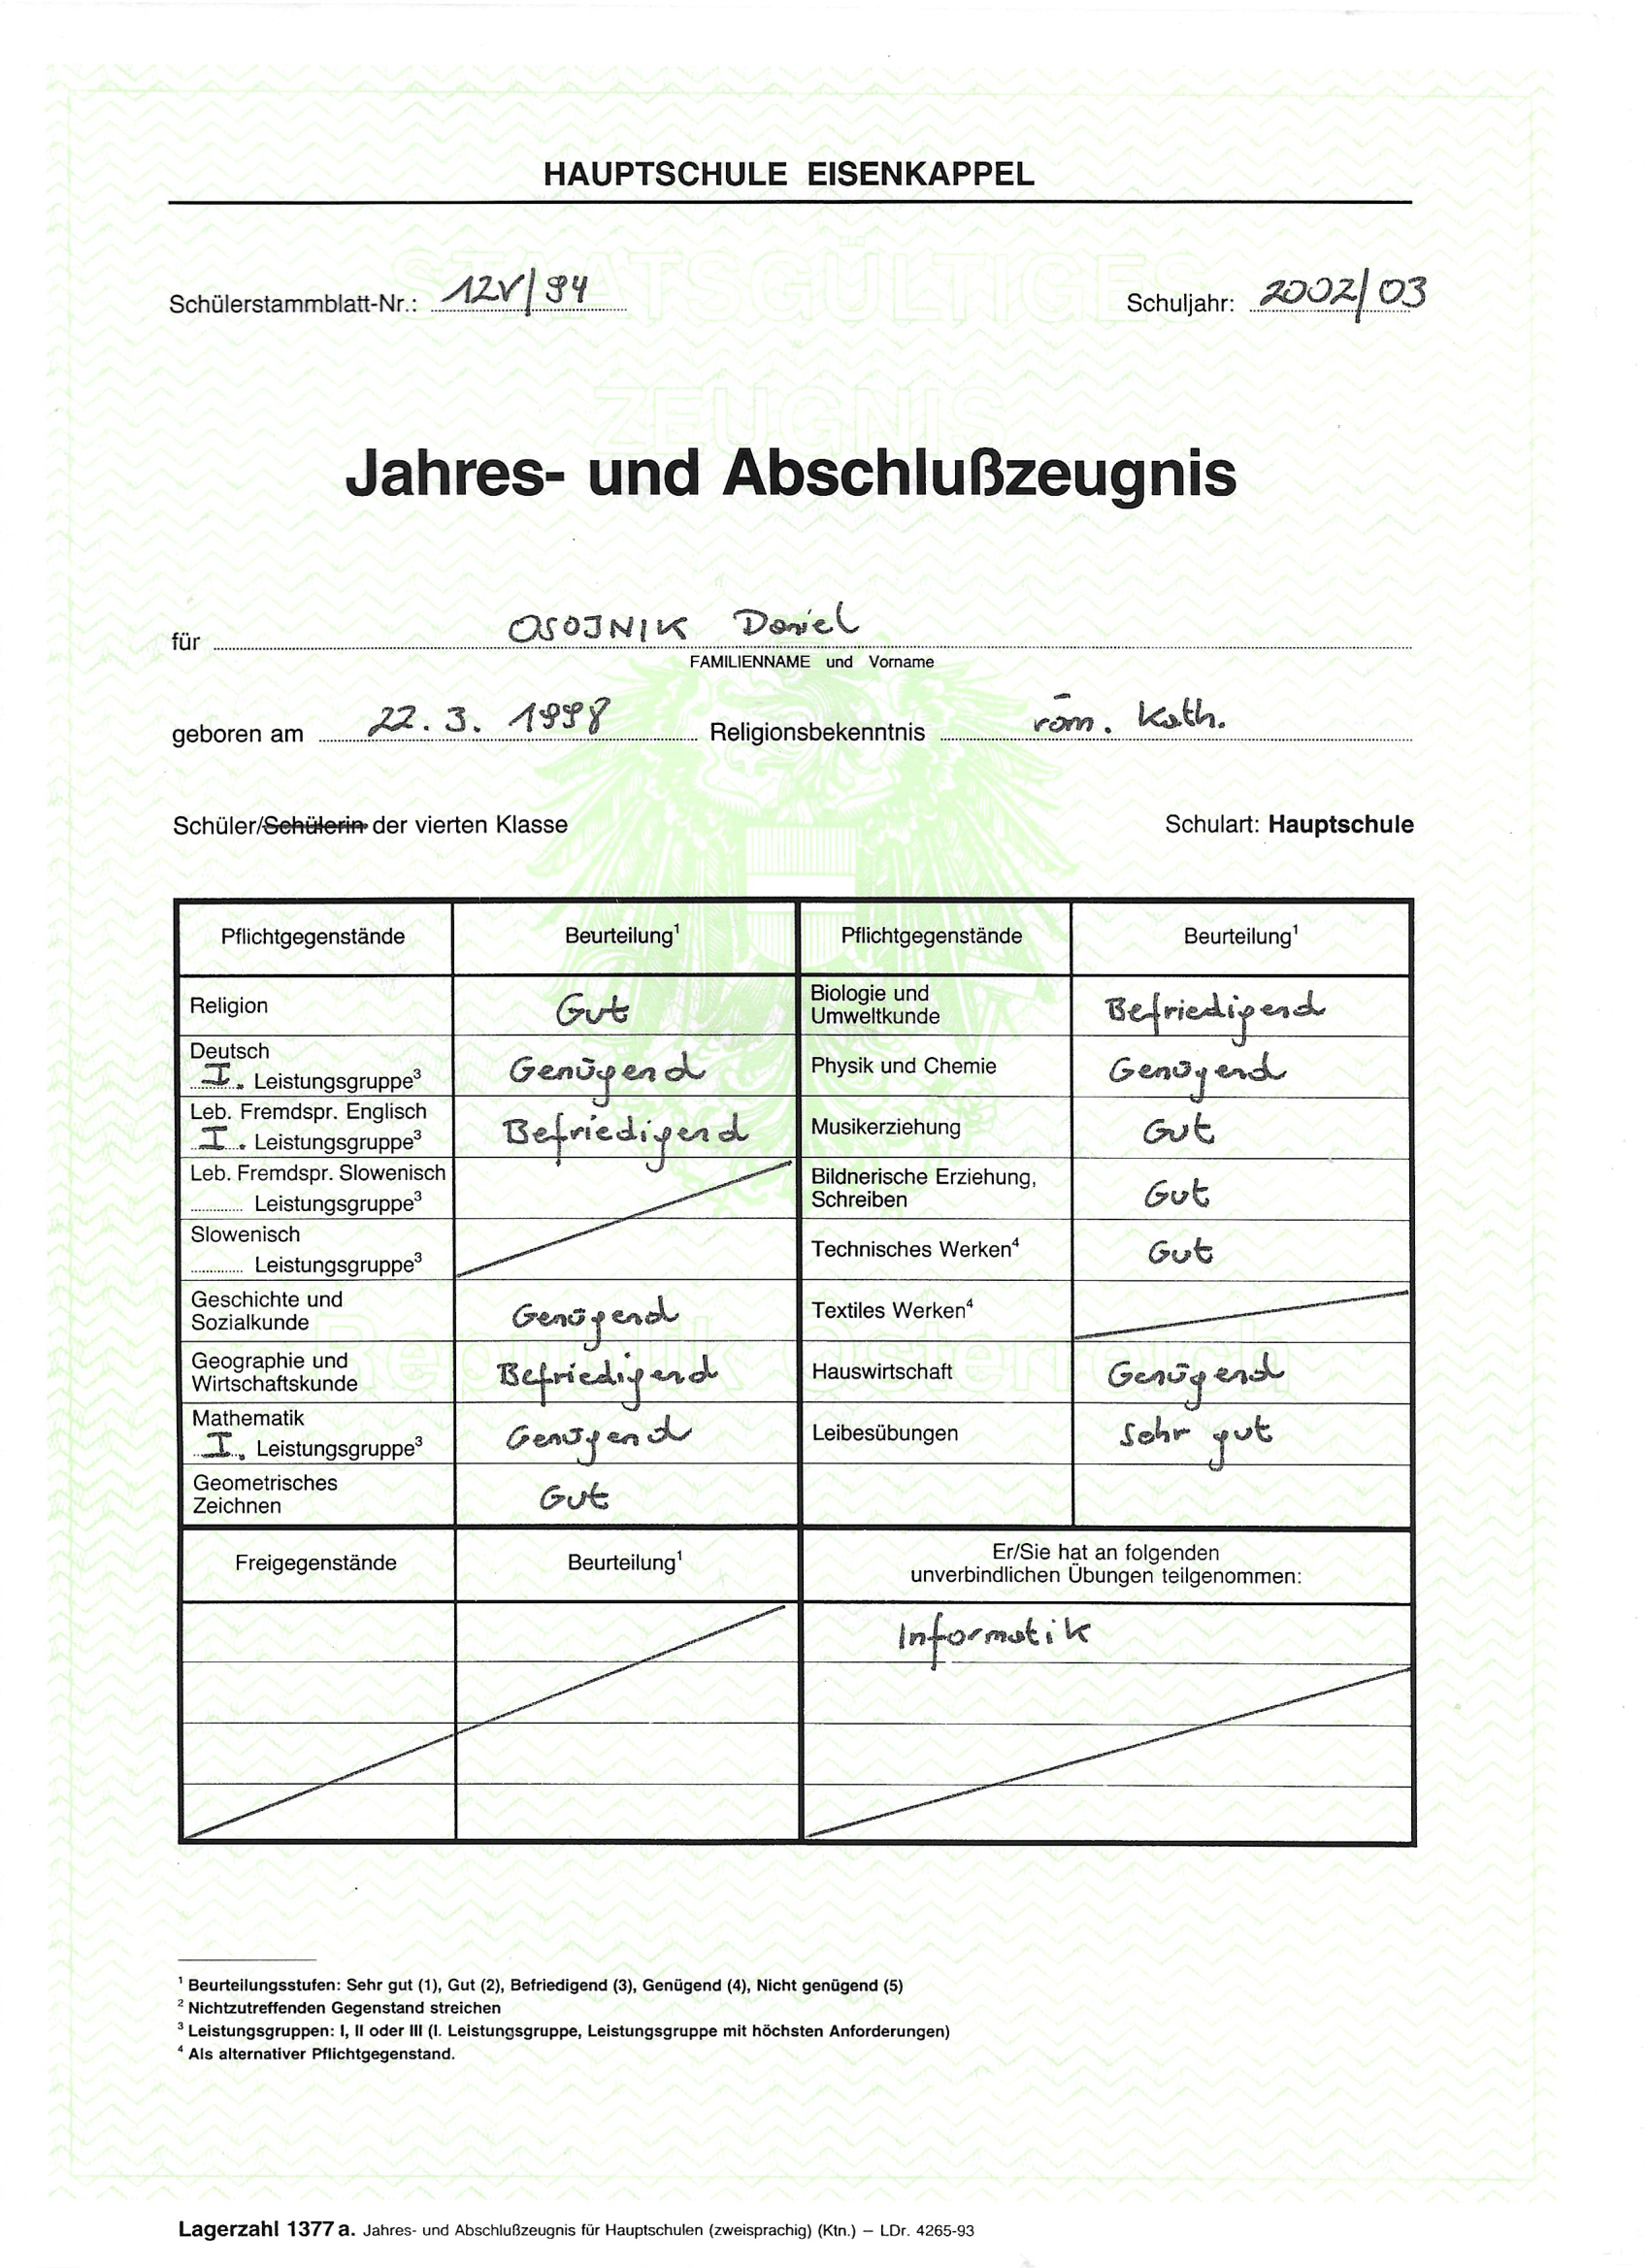 HAUPTSCHULE EISENKAPPEL
Schülerstammblatt-Nr.: 12V/94 Schuljahr: 2002/03
STAATSGÜLTIGES
ZEUGNIS
Jahres- und Abschlußzeugnis
für OSOJNIK Daniel
FAMILIENNAME und Vorname
geboren am 22. 3. 1998 Religionsbekenntnis röm. Kath.
Schüler/Schülerin der vierten Klasse Schulart: Hauptschule
Pflichtgegenstände Beurteilung¹ Pflichtgegenstände Beurteilung¹
Religion Gut
Biologie und
Umweltkunde Befriedigend
Deutsch
I. Leistungsgruppe³ Genügend
Physik und Chemie Genügend
Leb. Fremdspr. Englisch
I. Leistungsgruppe³ Befriedigend
Musikerziehung Gut
Leb. Fremdspr. Slowenisch
Leistungsgruppe³
Bildnerische Erziehung,
Schreiben Gut
Slowenisch
Leistungsgruppe³
Technisches Werken⁴ Gut
Geschichte und
Sozialkunde Genügend
Textiles Werken⁴
Republik Österreich
Geographie und
Wirtschaftskunde Befriedigend
Hauswirtschaft Genügend
Mathematik
I. Leistungsgruppe³ Genügend
Leibesübungen Sehr gut
Geometrisches
Zeichnen Gut
Freigegenstände Beurteilung¹
Er/Sie hat an folgenden
unverbindlichen Übungen teilgenommen:
Informatik
¹ Beurteilungsstufen: Sehr gut (1), Gut (2), Befriedigend (3), Genügend (4), Nicht genügend (5)
² Nichtzutreffenden Gegenstand streichen
³ Leistungsgruppen: I, II oder III (I. Leistungsgruppe, Leistungsgruppe mit höchsten Anforderungen)
⁴ Als alternativer Pflichtgegenstand.
Lagerzahl 1377 a. Jahres- und Abschlußzeugnis für Hauptschulen (zweisprachig) (Ktn.) – LDr. 4265-93